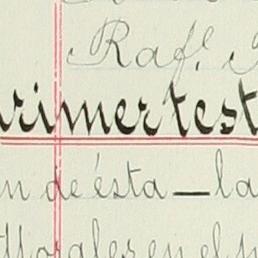 Raf.l
rimer test
n de ésta — la
Morales en el p